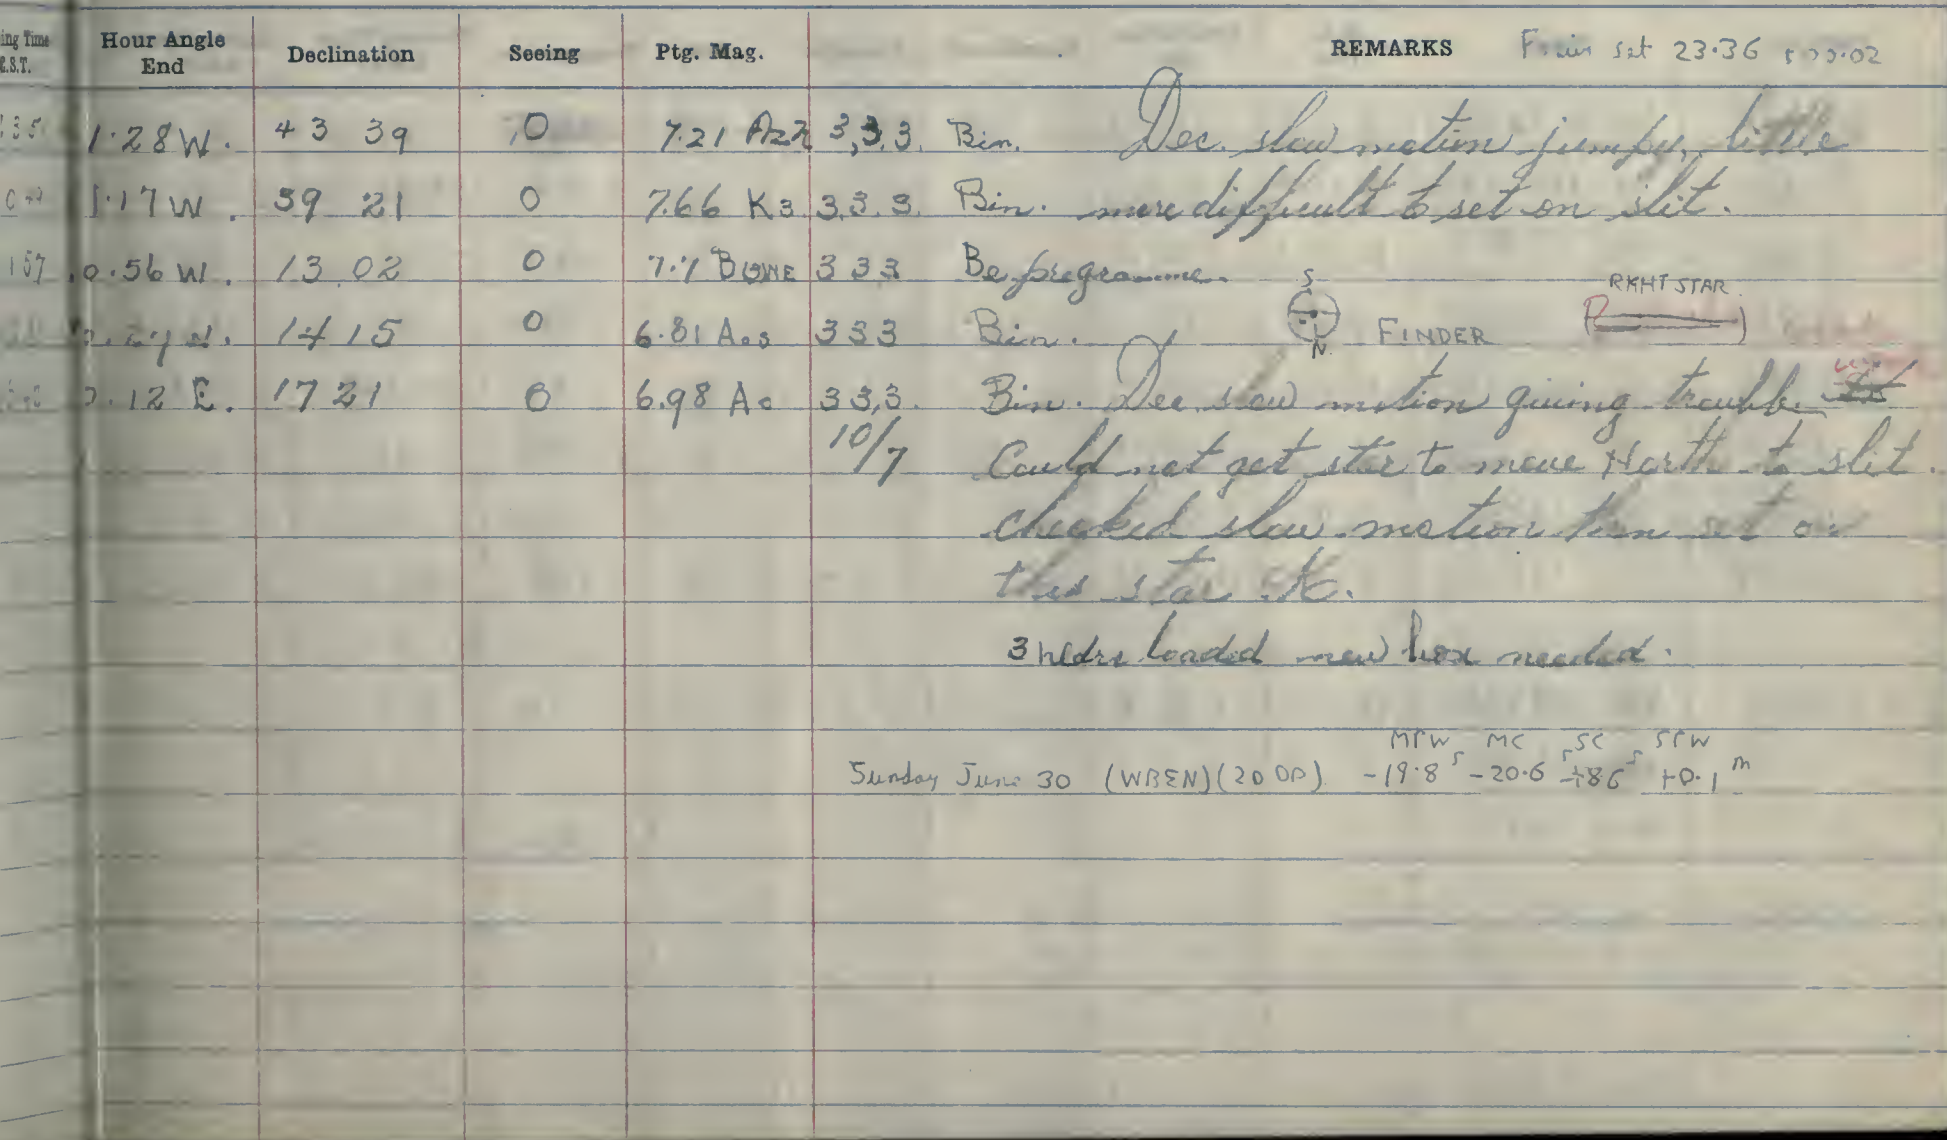 Hour Angle End Declination Seeing Ptg. Mag. REMARKS set 23.36
1.28 W. 43 39 0 7.21 3,3,3. Bin. Dec. slow motion jumpy, little
1.17 W. 39 21 0 7.66 K3 3.3.3. Bin. more difficult to set on slit.
0.56 W. 13 02 0 7.7 3 3 3 Be programme. S RIGHT STAR.
14 15 0 6.81 3 3 3 Bin. N. FINDER
0.12 E. 17 21 0 6.98 A0 3 3,3. Bin. Dec. slow motion giving trouble.
10/7 Could not get star to move North to slit.
checked slow motion then set on
this star OK.
3 hldrs loaded new box needed.
MTW MC SC STW
Sunday June 30 (WBEN) (20 00) -19.8 s -20.6 s s +0.1 m